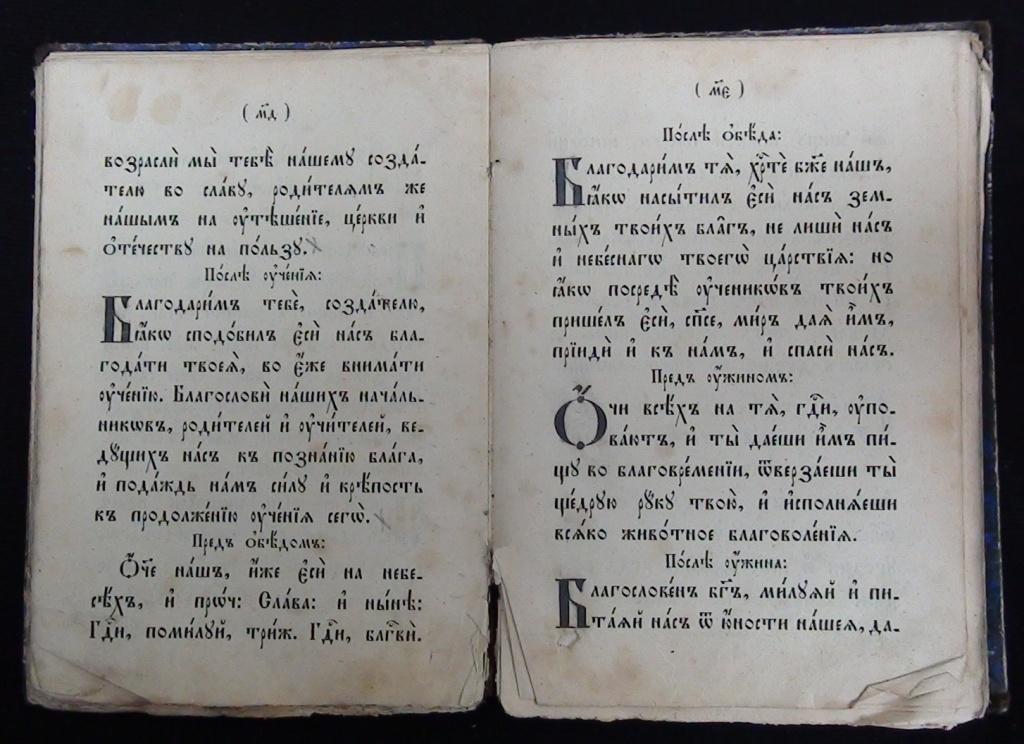 ( м҃д )
возрасли́ мы̀ тебѣ̀ на́шему созда́-
телю во сла́вꙋ, роди́телямъ же
на́шымъ на ᲂу҆тѣше́нїе, це́ркви и҆
ѻ҆те́чествꙋ на по́льзꙋ.
По́слѣ ᲂу҆че́нїѧ:
Благодари́мъ тебѐ, созда́телю,
ꙗ҆́кѡ сподо́билъ є҆сѝ на́съ бла-
года́ти твоеѧ̀, во є҆́же внима́ти
ᲂу҆че́нїю. Благословѝ на́шихъ нача́ль-
никѡвъ, роди́телей и҆ ᲂу҆чи́телей, ве-
дꙋ́щихъ на́съ къ позна́нїю бла́га,
и҆ пода́ждь на́мъ си́лꙋ и҆ крѣ́пость
къ продолже́нїю ᲂу҆че́нїѧ сегѡ̀.
Пред̾ ѻ҆бѣ́домъ:
Ѻ҆́ч҃е на́шъ, и҆́же є҆сѝ на небе-
сѣ́хъ, и҆ прѡ́ч: Сла́ва: и҆ ны́нѣ:
Гдⷭ҇и, поми́лꙋй, три́ж. Гдⷭ҇и, блгⷭ҇вѝ.
( м҃е )
По́слѣ ѻ҆бѣ́да:
Благодари́мъ тѧ̀, хрⷭ҇тѐ бж҃е на́шъ,
ꙗ҆́кѡ насы́тилъ є҆сѝ на́съ зем-
ны́хъ твои́хъ бла̑гъ, не лишѝ на́съ
и҆ небе́снагѡ твоегѡ̀ ца́рствїѧ: но
ꙗ҆́кѡ посредѣ̀ ᲂу҆ченикѡ́въ твои́хъ
прише́лъ є҆сѝ, сп҃се, ми́ръ даѧ̀ и҆̀мъ,
прїидѝ и҆ къ на́мъ, и҆ спасѝ на́съ.
Пред̾ ᲂу҆́жиномъ:
Ѻ҆́чи всѣ́хъ на тѧ̀, гдⷭ҇и, ᲂу҆по-
ва́ютъ, и҆ ты̀ дае́ши и҆̀мъ пи́-
щꙋ во благовре́менїи, ѿверза́еши ты̀
ще́дрꙋю рꙋ́кꙋ твою̀, и҆ и҆сполнѧ́еши
всѧ́ко живо́тное благоволе́нїѧ.
По́слѣ ᲂу҆́жина:
Благослове́нъ бг҃ъ, ми́лꙋѧй и҆ пи-
та́ѧй на́съ ѿ ю҆́ности на́шеѧ, да-